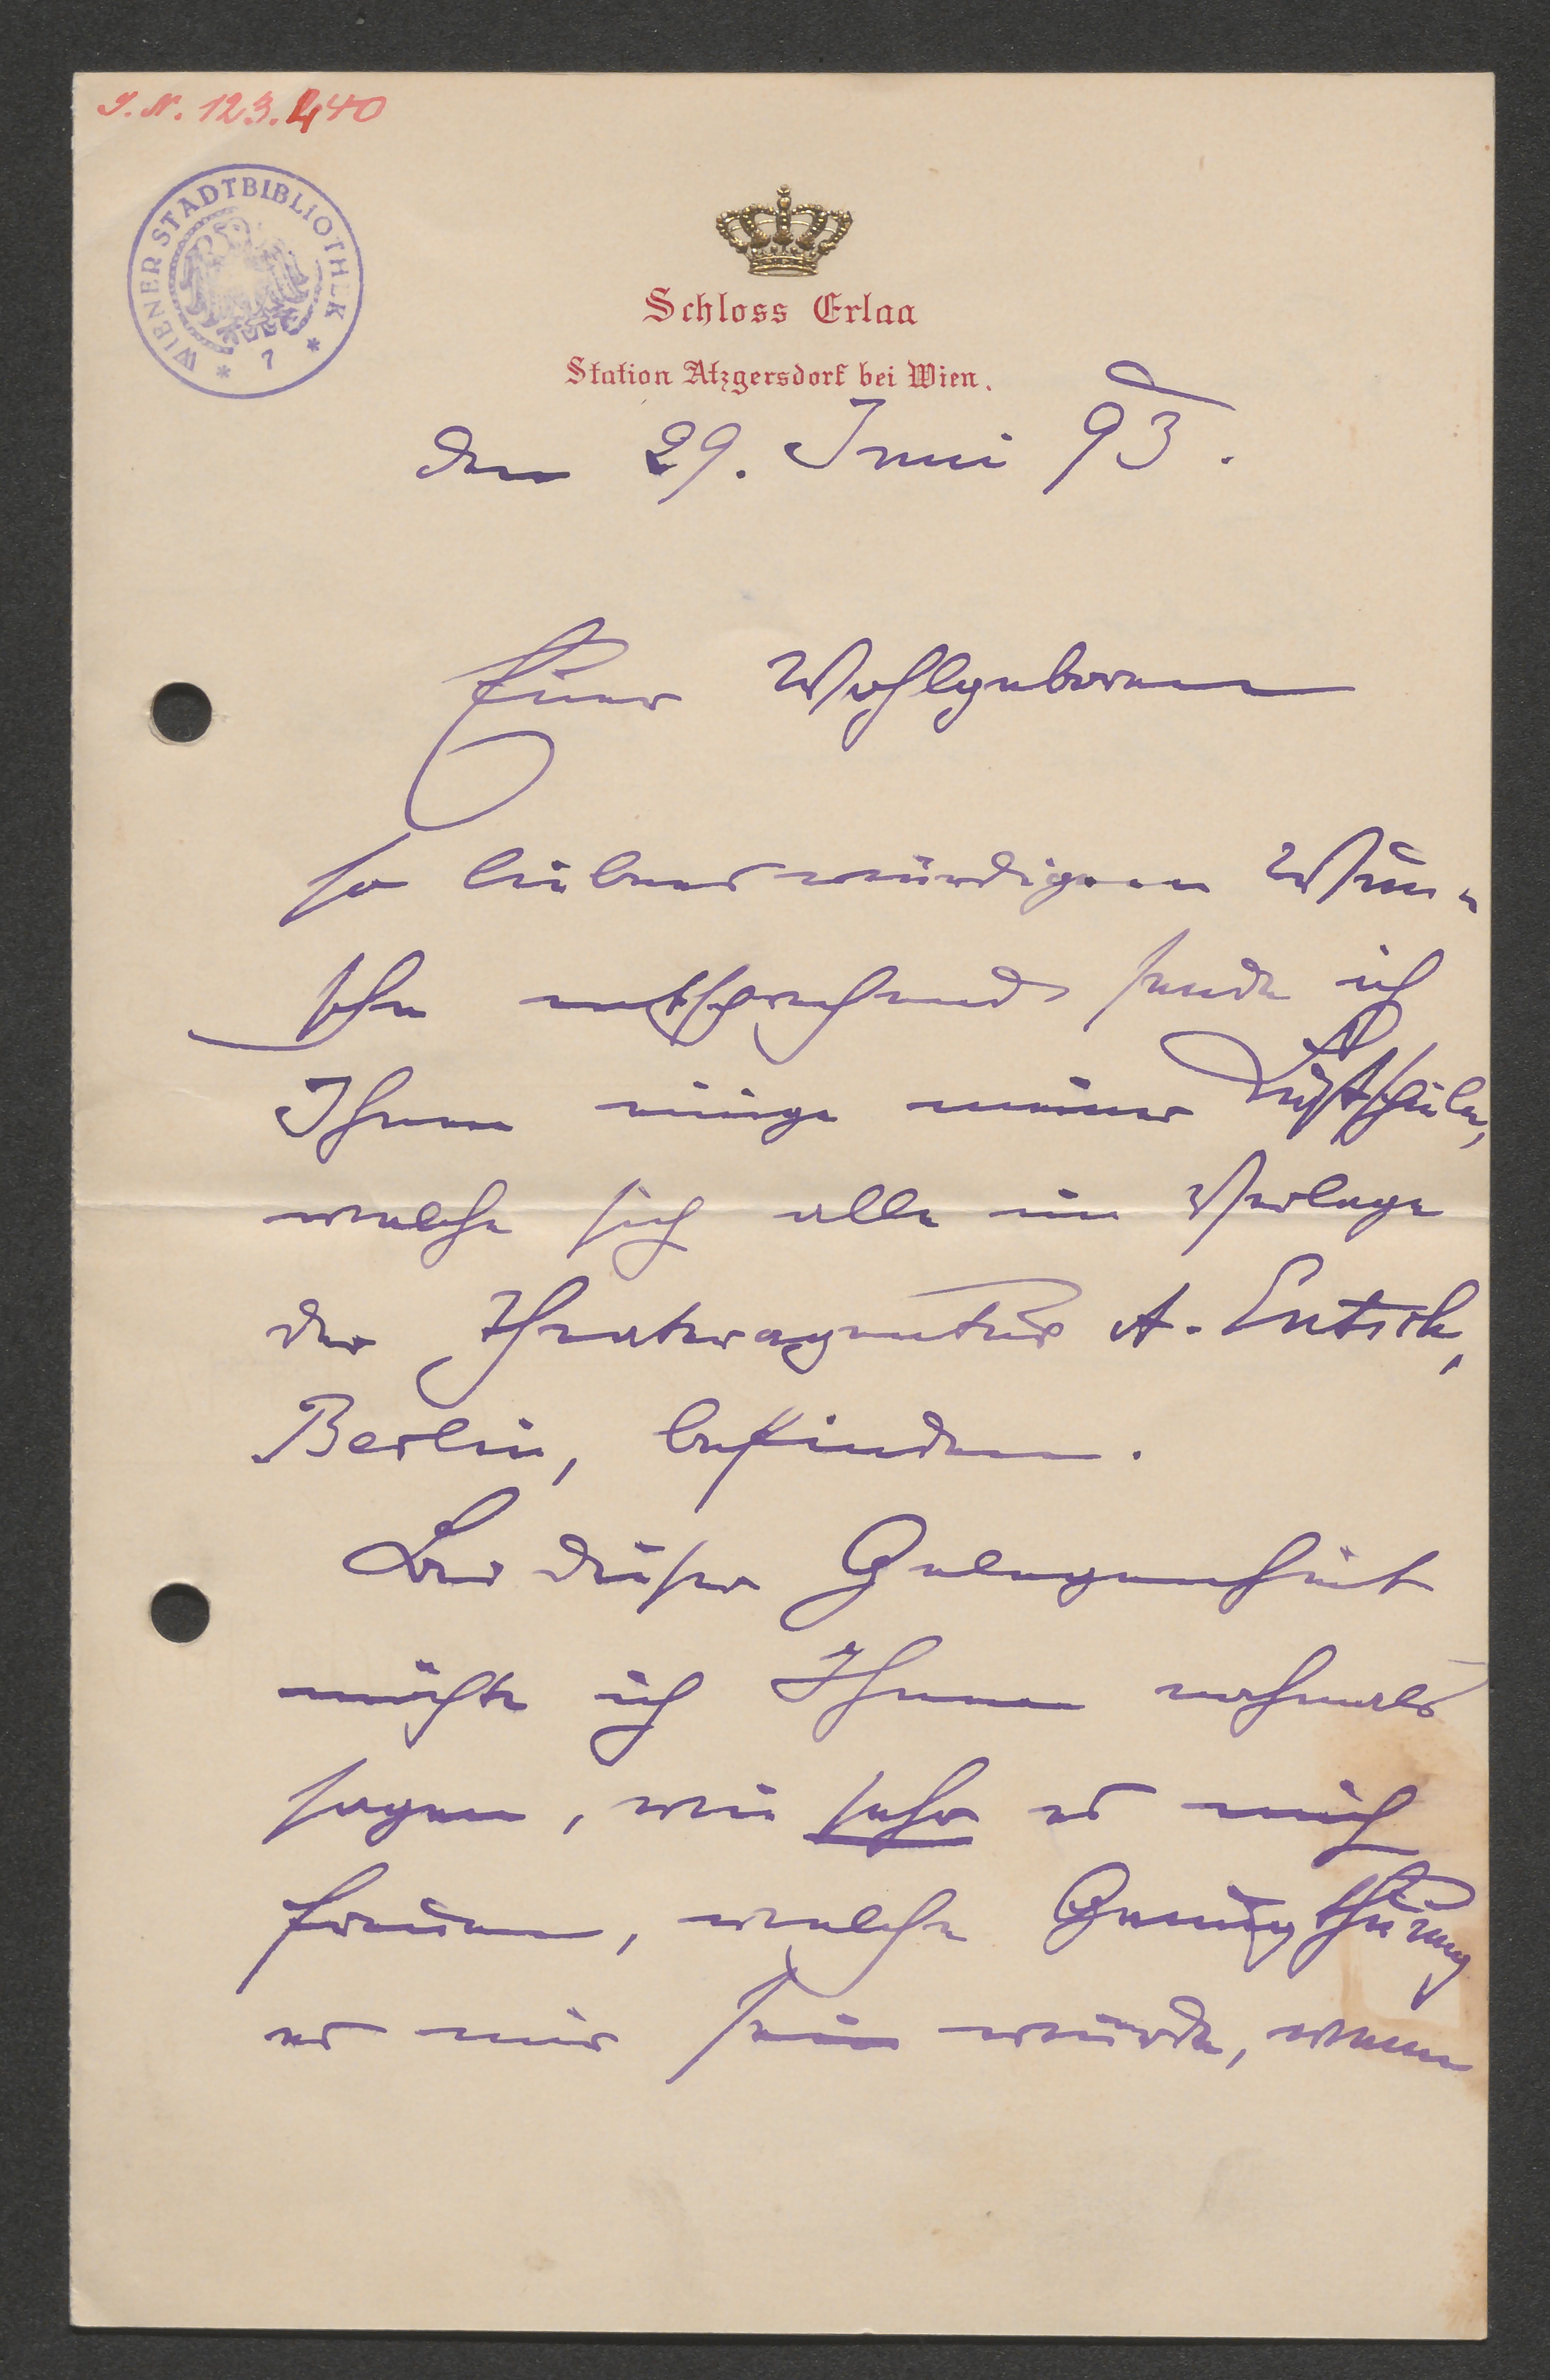 J. N. 123.440
WIENER STADTBIBLIOTHEK
* 7 *
Schloss Erlaa
Station Atzgersdorf bei Wien.
den 29. Juni 93.
Euer Wohlgeboren
so liebenswürdigem Wun-
sche entsprechend sende ich
Ihnen einige meiner Lustspiele,
welche sich alle im Verlage
der Theateragentur A. Entsch,
Berlin, befinden.
Bei dieser Gelegenheit
möchte ich Ihnen nochmals
sagen, wie sehr es mich
freuen, welche Genugthuung
es mir sein würde, wenn